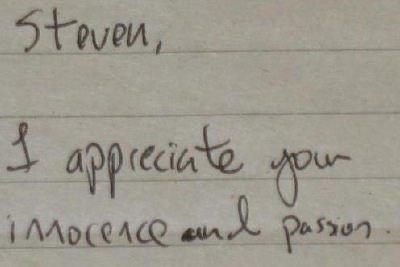 Steven,
I appreciate your
innocence and passion.